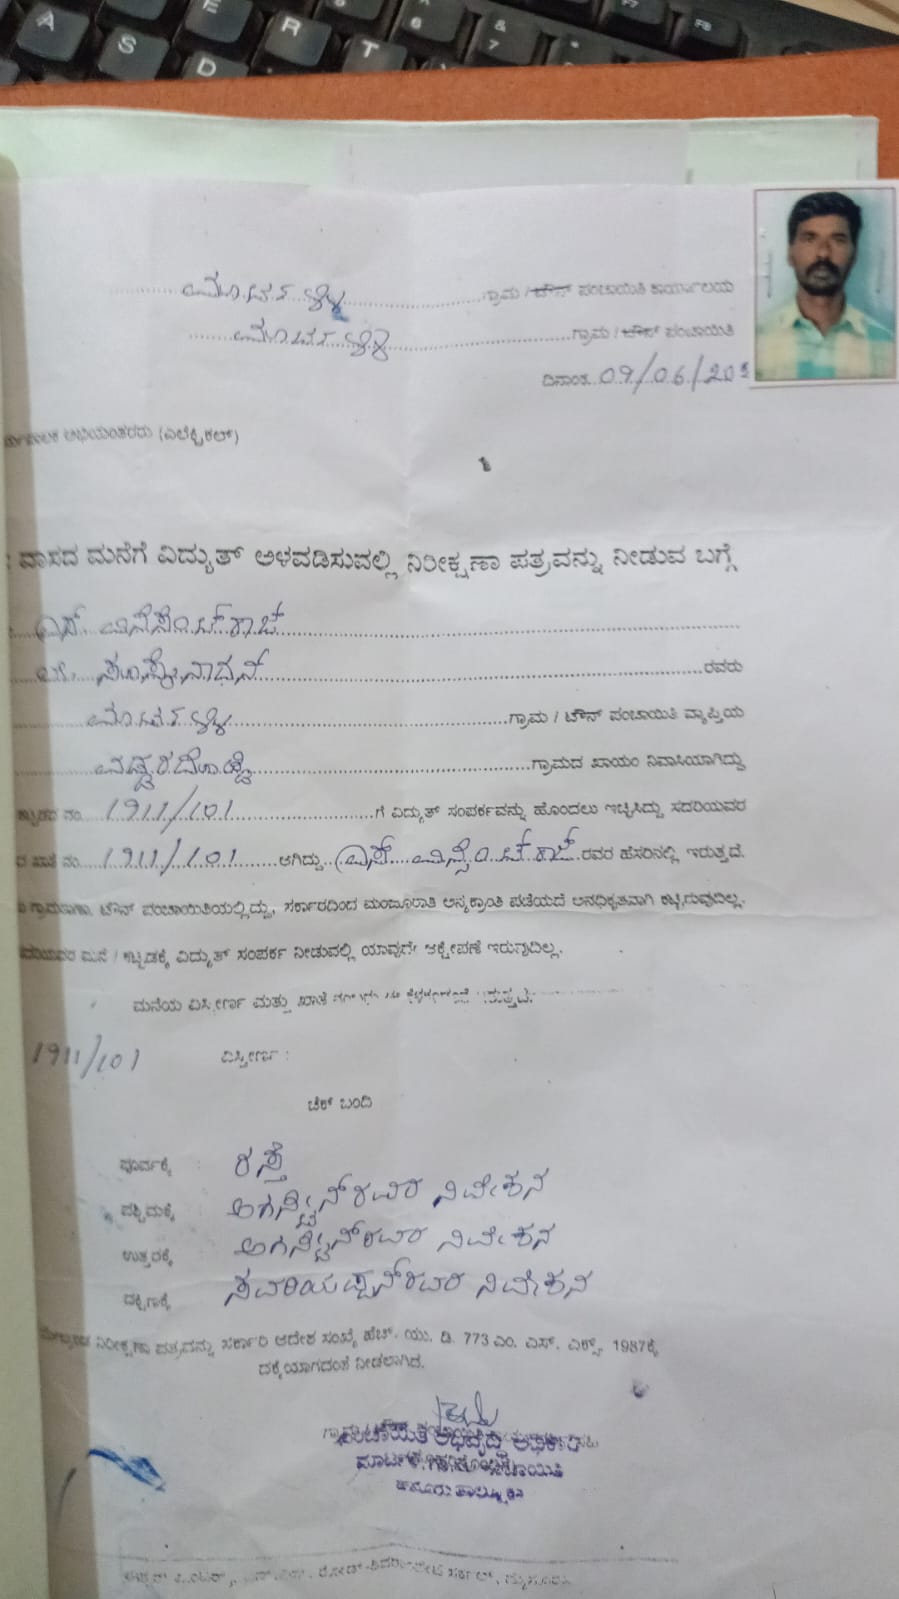 A S E R T 6 & 7 F7 F8
ಮಾರ್ಟಳ್ಳಿ ಗ್ರಾಮ / ಟೌನ್ ಪಂಚಾಯಿತಿ ಕಾರ್ಯಾಲಯ
ಮಾರ್ಟಳ್ಳಿ ಗ್ರಾಮ / ಟೌನ್ ಪಂಚಾಯಿತಿ
ದಿನಾಂಕ 09/06/20
ಅಭಿಯಂತರರು (ಎಲೆಕ್ಟ್ರಿಕಲ್)
: ವಾಸದ ಮನೆಗೆ ವಿದ್ಯುತ್ ಅಳವಡಿಸುವಲ್ಲಿ ನಿರೀಕ್ಷಣಾ ಪತ್ರವನ್ನು ನೀಡುವ ಬಗ್ಗೆ
ಎಸ್ ವಿನ್ಸೆಂಟ್ ರಾಜ್
ರವರು
ಮಾರ್ಟಳ್ಳಿ ಗ್ರಾಮ / ಟೌನ್ ಪಂಚಾಯಿತಿ ವ್ಯಾಪ್ತಿಯ
ವಡ್ಡರದೊಡ್ಡಿ ಗ್ರಾಮದ ಖಾಯಂ ನಿವಾಸಿಯಾಗಿದ್ದು
ನಂ 1911/101 ಗೆ ವಿದ್ಯುತ್ ಸಂಪರ್ಕವನ್ನು ಹೊಂದಲು ಇಚ್ಛಿಸಿದ್ದು ಸದರಿಯವರ
ಖಾತೆ ನಂ. 1911/101 ಆಗಿದ್ದು ಎಸ್ ವಿನ್ಸೆಂಟ್ ರಾಜ್ ರವರ ಹೆಸರಿನಲ್ಲಿ ಇರುತ್ತದೆ.
ಟೌನ್ ಪಂಚಾಯಿತಿಯಲ್ಲಿದ್ದು, ಸರ್ಕಾರದಿಂದ ಮಂಜೂರಾತಿ ಅನ್ಯಕ್ರಾಂತಿ ಪಡೆಯದೆ ಅನಧಿಕೃತವಾಗಿ ಕಟ್ಟಿರುವುದಿಲ್ಲ.
ಮನೆ / ಕಟ್ಟಡಕ್ಕೆ ವಿದ್ಯುತ್ ಸಂಪರ್ಕ ನೀಡುವಲ್ಲಿ ಯಾವುದೇ ಆಕ್ಷೇಪಣೆ ಇರುವುದಿಲ್ಲ.
ಮನೆಯ ವಿಸ್ತೀರ್ಣ ಮತ್ತು ಖಾತೆ
1911/101 ವಿಸ್ತೀರ್ಣ :
ಚೆಕ್ ಬಂದಿ
ಪೂರ್ವಕ್ಕೆ : ರಸ್ತೆ
ಪಶ್ಚಿಮಕ್ಕೆ : ಅಗಸ್ಟಿನ್ ರವರ ನಿವೇಶನ
ಉತ್ತರಕ್ಕೆ : ಅಗಸ್ಟಿನ್ ರವರ ನಿವೇಶನ
ದಕ್ಷಿಣಕ್ಕೆ : ಶವರಿಯಪ್ಪನ್ ರವರ ನಿವೇಶನ
ನಿರೀಕ್ಷಣಾ ಪತ್ರವನ್ನು ಸರ್ಕಾರಿ ಆದೇಶ ಸಂಖ್ಯೆ ಹೆಚ್. ಯು. ಡಿ. 773 ಎಂ. ಎಸ್. ಎಕ್ಸ್. 1987ಕ್ಕೆ
ದಕ್ಕೆಯಾಗದಂತೆ ನೀಡಲಾಗಿದೆ.
ಪಂಚಾಯಿತಿ ಅಭಿವೃದ್ಧಿ ಅಧಿಕಾರಿ
ಮಾರ್ಟಳ್ಳಿ ಗ್ರಾಮ ಪಂಚಾಯಿತಿ
ಹನೂರು ತಾಲ್ಲೂಕು